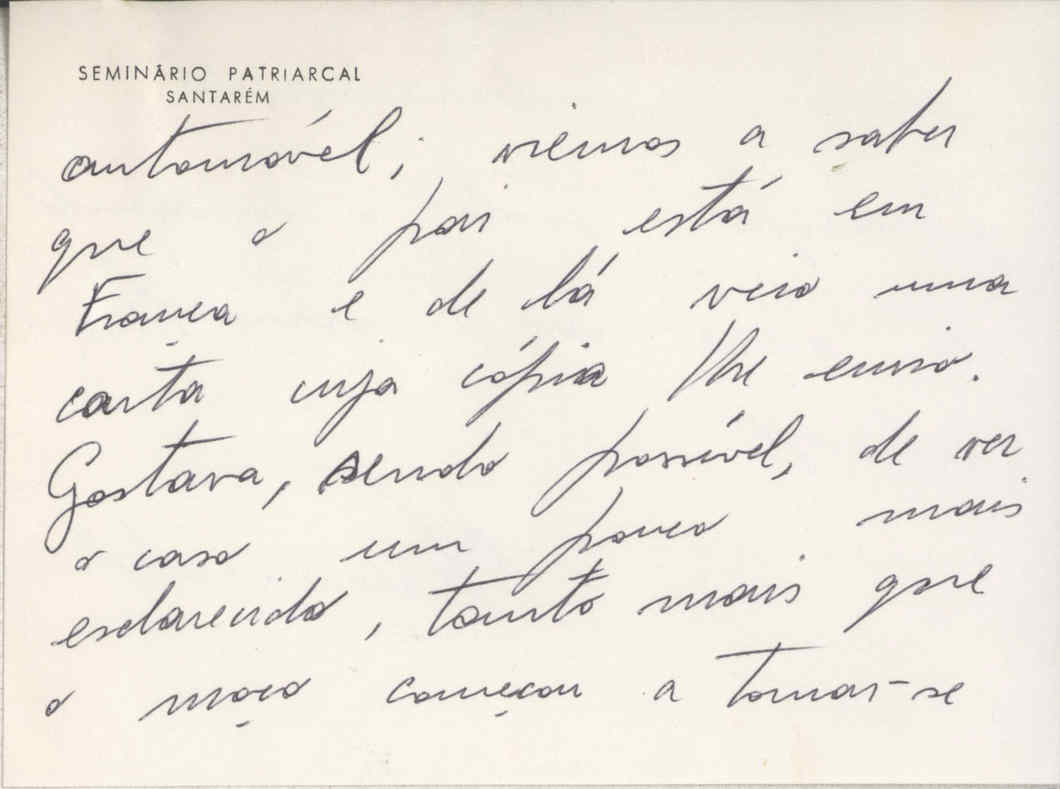 SEMINÁRIO PATRIARCAL
SANTARÉM
automóvel; viemos a saber
que o pai está em
França e de lá veio uma
carta cuja cópia lhe envio.
Gostava, sendo possível, de ver
o caso um pouco mais
esclarecido, tanto mais que
o moço começou a tomar-se